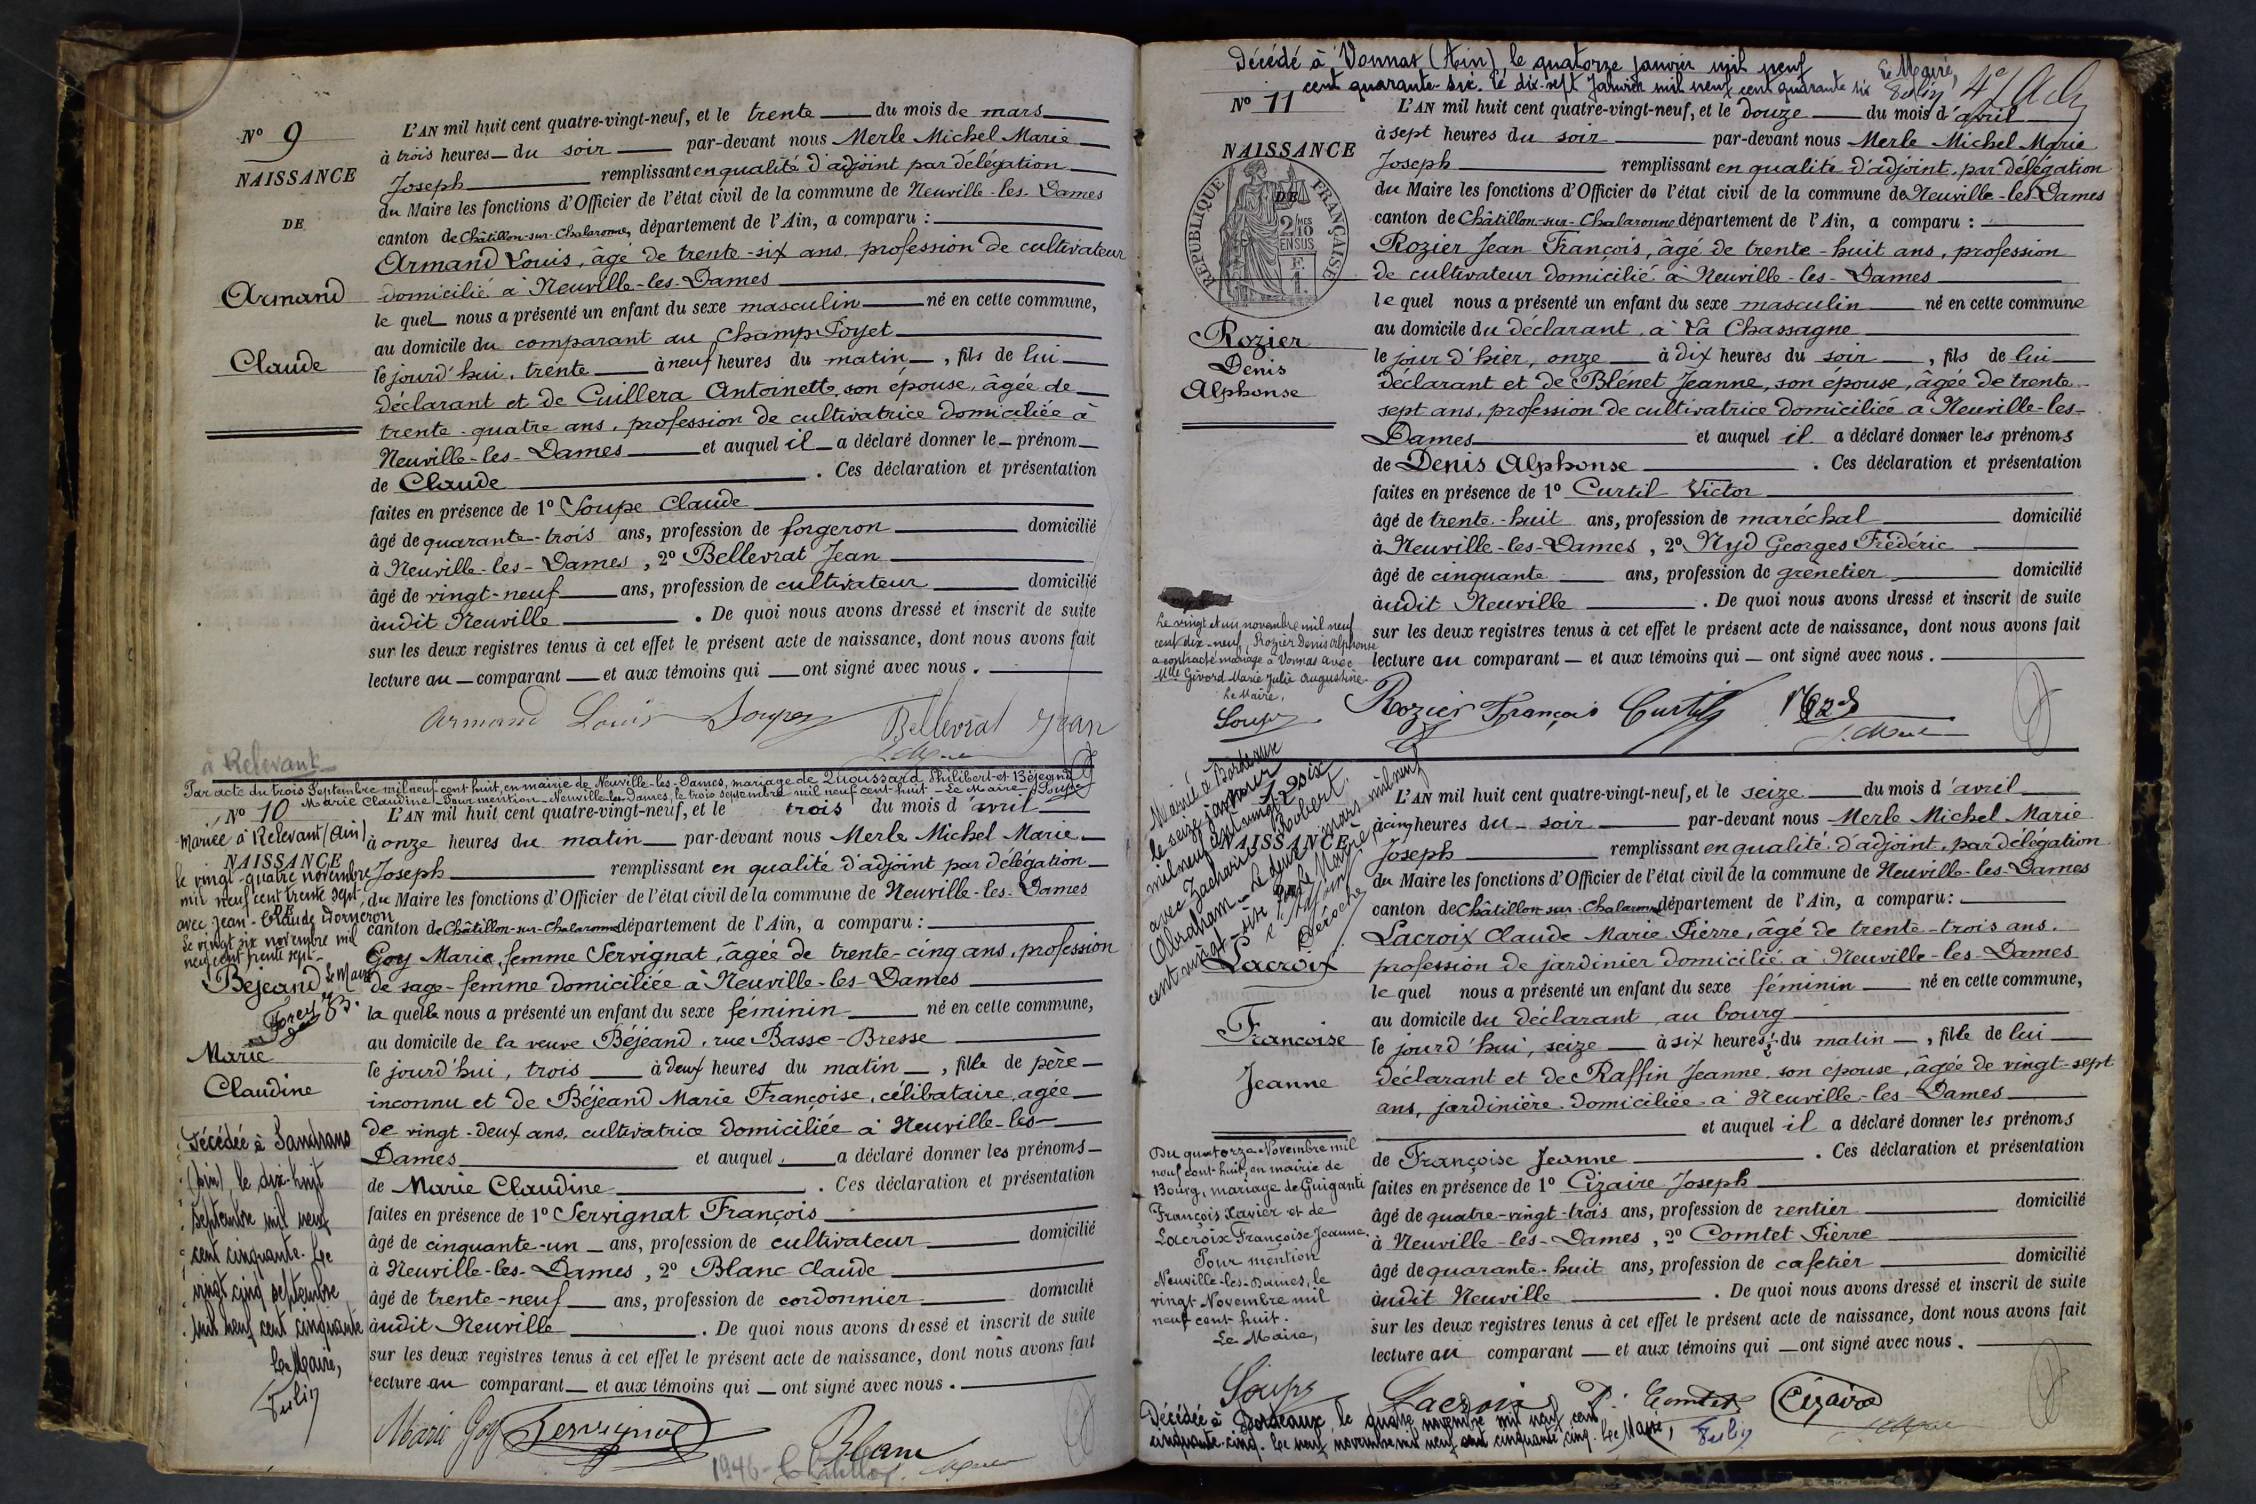 Nº 9
NAISSANCE
DE
Armand
Claude
L'AN mil huit cent quatre-vingt-neuf, et le trente du mois de mars
à trois heures du soir par-devant nous Merle Michel Marie
Joseph remplissant en qualité d'adjoint par délégation
du Maire les fonctions d'Officier de l'état civil de la commune de Neuville-les-Dames
canton de Châtillon-sur-Chalaronne, département de l'Ain, a comparu :
Armand Louis, âgé de trente-six ans, profession de cultivateur
domicilié à Neuville-les-Dames
le quel nous a présenté un enfant du sexe masculin né en cette commune,
au domicile du comparant au Champ Poyet
le jourd'hui, trente à neuf heures du matin, fils de lui
déclarant et de Cuillera Antoinette, son épouse, âgée de
trente-quatre ans, profession de cultivatrice domiciliée à
Neuville-les-Dames et auquel il a déclaré donner le prénom
de Claude. Ces déclaration et présentation
faites en présence de 1º Soupe Claude
âgé de quarante-trois ans, profession de forgeron domicilié
à Neuville-les-Dames, 2º Bellevrat Jean
âgé de vingt-neuf ans, profession de cultivateur domicilié
àudit Neuville. De quoi nous avons dressé et inscrit de suite
sur les deux registres tenus à cet effet le présent acte de naissance, dont nous avons fait
lecture au comparant et aux témoins qui ont signé avec nous.
Armand Louis Soupe Bellevrat Jean
J. Merle
à Relevant
Par acte du trois Septembre mil neuf cent huit, en mairie de Neuville-les-Dames, mariage de Quoussard Philibert et Béjeand
Marie Claudine. Pour mention. Neuville-les-Dames, le trois septembre mil neuf cent huit. Le Maire, Soupe
Nº 10
Mariée à Relevant (Ain)
NAISSANCE
le vingt-quatre novembre
mil neuf cent trente sept,
DE
avec Jean-Claude Dorneron
Le vingt six novembre mil
neuf cent trente sept
Le Maire
Béjeand
Marie
Claudine
Décédée à Sandrans
(Ain) le dix-huit
septembre mil neuf
cent cinquante. Le
vingt cinq septembre
mil neuf cent cinquante
Le Maire,
L'AN mil huit cent quatre-vingt-neuf, et le trois du mois d'avril
à onze heures du matin par-devant nous Merle Michel Marie
Joseph remplissant en qualité d'adjoint par délégation
du Maire les fonctions d'Officier de l'état civil de la commune de Neuville-les-Dames
canton de Châtillon-sur-Chalaronne département de l'Ain, a comparu :
Goy Marie, femme Servignat, âgée de trente-cinq ans, profession
de sage-femme domiciliée à Neuville-les-Dames
la quelle nous a présenté un enfant du sexe féminin né en cette commune,
au domicile de la veuve Béjeand, rue Basse-Bresse
le jourd'hui, trois à deux heures du matin, fille de père
inconnu et de Béjeand Marie Françoise, célibataire, agée
de vingt-deux ans, cultivatrice domiciliée à Neuville-les-
Dames et auquel a déclaré donner les prénoms
de Marie Claudine. Ces déclaration et présentation
faites en présence de 1º Servignat François
âgé de cinquante-un ans, profession de cultivateur domicilié
à Neuville-les-Dames, 2º Blanc Claude
âgé de trente-neuf ans, profession de cordonnier domicilié
àudit Neuville. De quoi nous avons dressé et inscrit de suite
sur les deux registres tenus à cet effet le présent acte de naissance, dont nous avons fait
lecture au comparant et aux témoins qui ont signé avec nous.
Marie Goy Servignat Blanc
1946 - Châtillon
Décédé à Vonnas (Ain), le quatorze janvier mil neuf
cent quarante-six. le dix-sept Janvier mil neuf cent quarante six
Le Maire,
Nº 11
NAISSANCE
DE
RÉPUBLIQUE FRANÇAISE
2/10 EN SUS
Rozier
Denis
Alphonse
L'AN mil huit cent quatre-vingt-neuf, et le douze du mois d'avril
à sept heures du soir par-devant nous Merle Michel Marie
Joseph remplissant en qualité d'adjoint, par délégation
du Maire les fonctions d'Officier de l'état civil de la commune de Neuville-les-Dames
canton de Châtillon-sur-Chalaronne département de l'Ain, a comparu :
Rozier Jean François, âgé de trente-huit ans, profession
de cultivateur domicilié à Neuville-les-Dames
le quel nous a présenté un enfant du sexe masculin né en cette commune
au domicile du déclarant, à La Chassagne
le jour d'hier, onze à dix heures du soir, fils de lui
déclarant et de Blénet Jeanne, son épouse, âgée de trente-
sept ans, profession de cultivatrice domiciliée à Neuville-les-
Dames et auquel il a déclaré donner les prénoms
de Denis Alphonse. Ces déclaration et présentation
faites en présence de 1º Curtil Victor
âgé de trente-huit ans, profession de maréchal domicilié
à Neuville-les-Dames, 2º Nyd Georges Frédéric
âgé de cinquante ans, profession de grènetier domicilié
àudit Neuville. De quoi nous avons dressé et inscrit de suite
sur les deux registres tenus à cet effet le présent acte de naissance, dont nous avons fait
lecture au comparant et aux témoins qui ont signé avec nous.
Le vingt et un novembre mil neuf
cent dix-neuf, Rozier Denis Alphonse
a contracté mariage à Vonnas avec
Mlle Givord Marie Julie Augustine.
Le Maire,
Soupe
Rozier François Curtil Nyd
J. Merle
Marié à Bordeaux
le seize janvier
mil neuf cent vingt six
avec Zacharie Robert
Abraham. Le deux mars mil neuf
cent vingt-six Le Maire,
Déroche
NAISSANCE
DE
Lacroix
Françoise
Jeanne
L'AN mil huit cent quatre-vingt-neuf, et le seize du mois d'avril
à cinq heures du soir par-devant nous Merle Michel Marie
Joseph remplissant en qualité d'adjoint, par délégation
du Maire les fonctions d'Officier de l'état civil de la commune de Neuville-les-Dames
canton de Châtillon-sur-Chalaronne département de l'Ain, a comparu :
Lacroix Claude Marie Pierre, âgé de trente-trois ans,
profession de jardinier domicilié à Neuville-les-Dames
le quel nous a présenté un enfant du sexe féminin né en cette commune,
au domicile du déclarant, au bourg
le jourd'hui, seize à six heures du matin, fille de lui
déclarant et de Raffin Jeanne, son épouse, âgée de vingt-sept
ans, jardinière domiciliée à Neuville-les-Dames
et auquel il a déclaré donner les prénoms
de Françoise Jeanne. Ces déclaration et présentation
faites en présence de 1º Cizaire Joseph
âgé de quatre-vingt-trois ans, profession de rentier domicilié
à Neuville-les-Dames, 2º Comtet Pierre
âgé de quarante-huit ans, profession de cafetier domicilié
àudit Neuville. De quoi nous avons dressé et inscrit de suite
sur les deux registres tenus à cet effet le présent acte de naissance, dont nous avons fait
lecture au comparant et aux témoins qui ont signé avec nous.
Du quatorze Novembre mil
neuf cent huit, en mairie de
Bourg, mariage de Guiganti
François Xavier et de
Lacroix Françoise Jeanne.
Pour mention
Neuville-les-Dames, le
vingt Novembre mil
neuf cent huit.
Le Maire,
Soupe
Lacroix P. Comtet Cizaire
Décédée à Bordeaux le quatre novembre mil neuf cent
cinquante-cinq. Le neuf novembre mil neuf cent cinquante cinq. Le Maire,